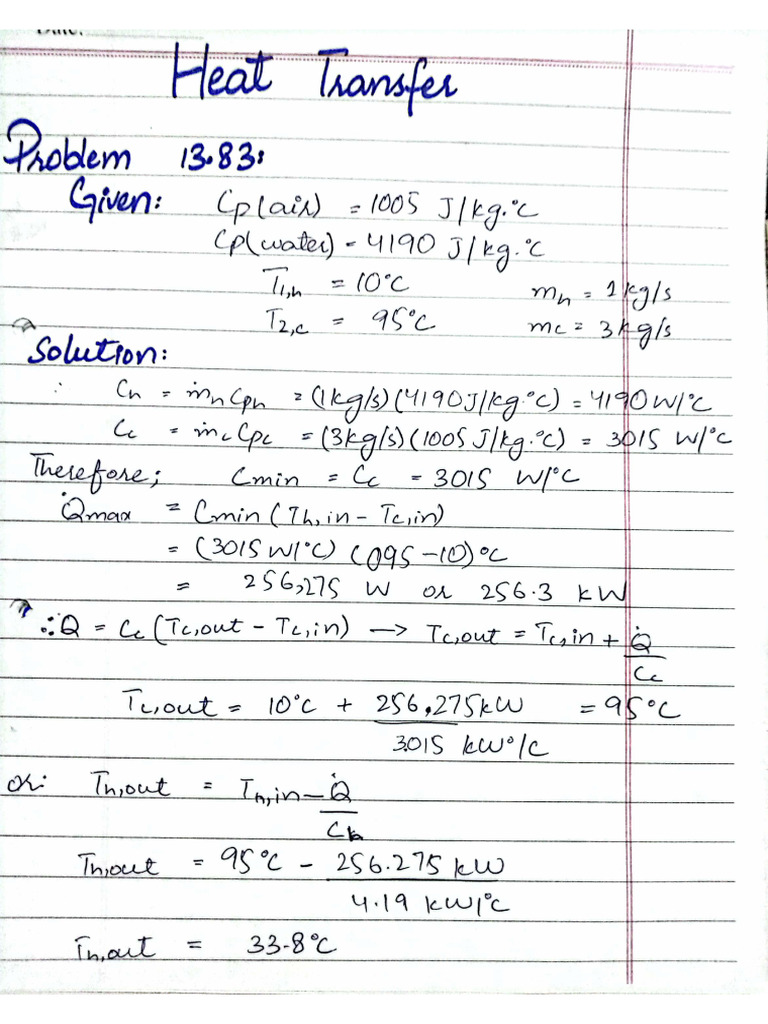 Date:
Heat Transfer
Problem 13.83:
Given: Cp(air) = 1005 J/kg.°C
Cp(water) - 4190 J/kg.°C
T1,h = 10°C mh = 1kg/s
T2,c = 95°C mc = 3kg/s
Solution:
∴ Ch = ṁhCph = (1kg/s)(4190J/kg.°C) = 4190W/°C
Cc = ṁcCpc = (3kg/s)(1005J/kg.°C) = 3015 W/°C
Therefore; Cmin = Cc = 3015 W/°C
Q̇max = Cmin(Th,in - Tc,in)
= (3015W/°C)(095-10)°C
= 256,275 W or 256.3 kW
∴Q = Cc(Tc,out - Tc,in) → Tc,out = Tc,in + Q̇
Cc
Tc,out = 10°C + 256,275kW = 95°C
3015 kW°/C
or: Th,out = Th,in - Q̇
Ch
Th,out = 95°C - 256.275 kW
4.19 kW/°C
Th,out = 33.8°C